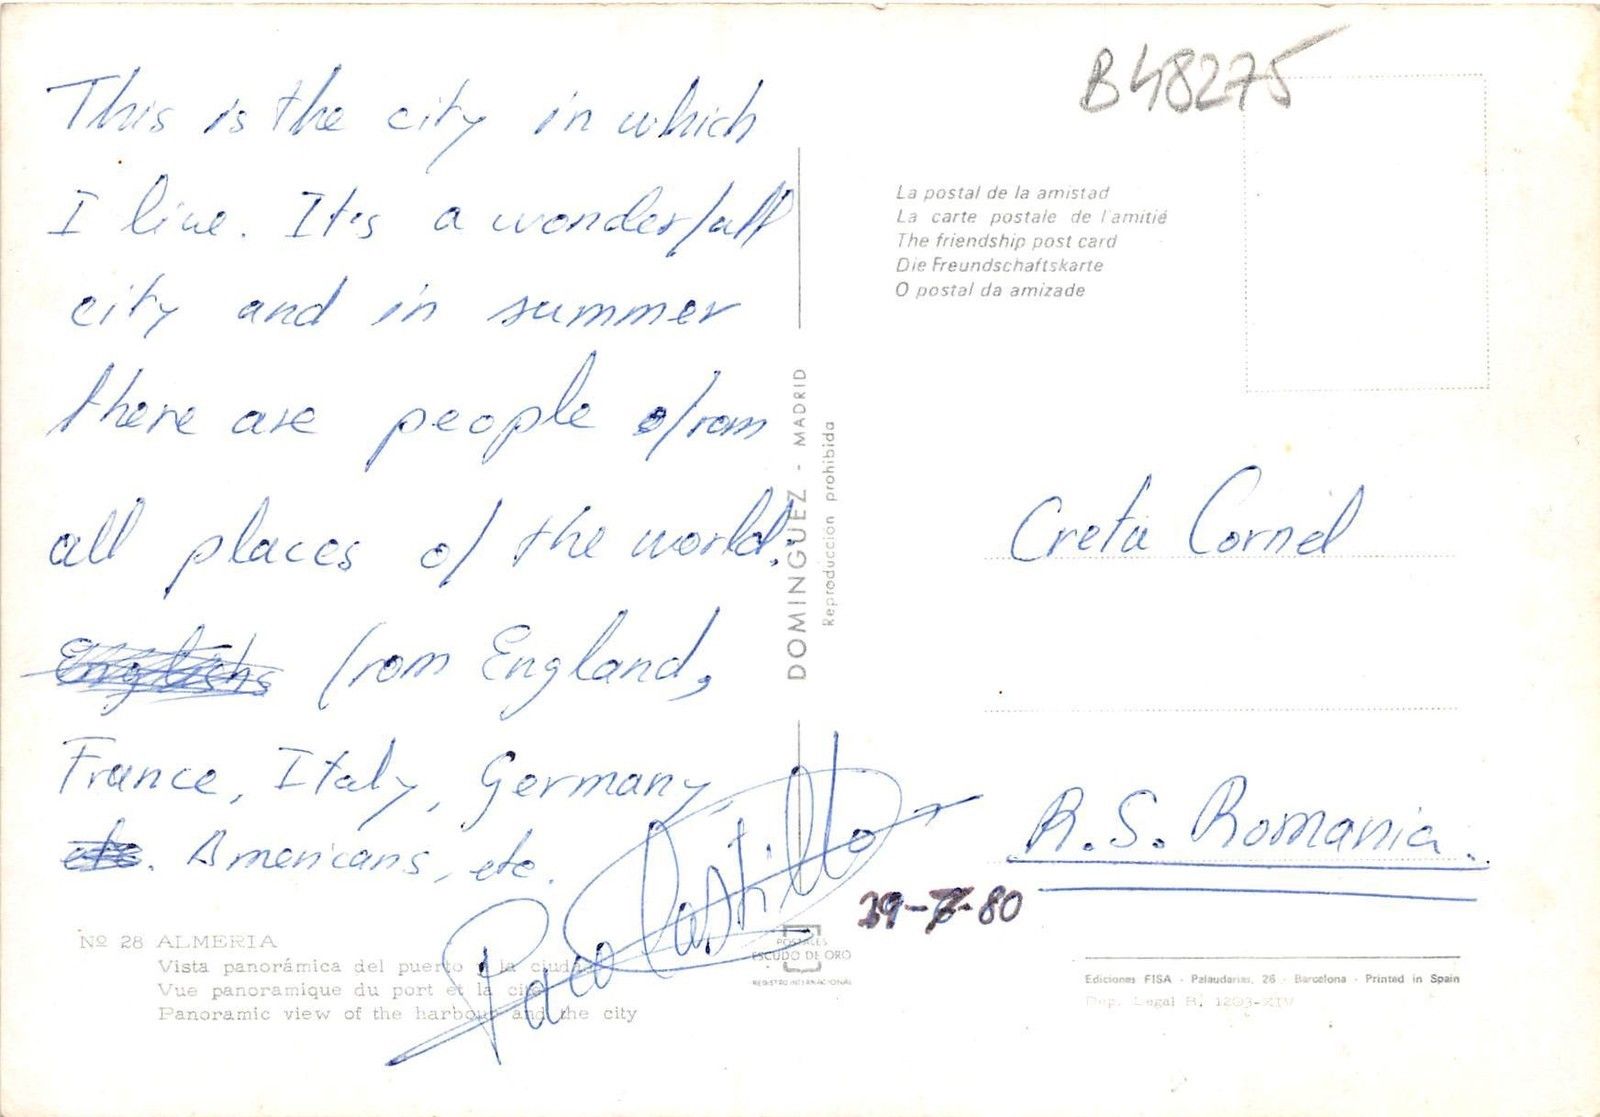 This is the city in which
I live. It's a wonderfull
city and in summer
there are people from
all places of the world.
Englishs from England,
France, Italy, Germany,
etc. Americans, etc.
Paco Castillo
Nº 28 ALMERIA
Vista panorámica del puerto y la ciudad
Vue panoramique du port et la cité
Panoramic view of the harbour and the city
DOMINGUEZ - MADRID
Reproducción prohibida
POSTALES
ESCUDO DE ORO
REGISTRO INTERNACIONAL
B48275
La postal de la amistad
La carte postale de l'amitié
The friendship post card
Die Freundschaftskarte
O postal da amizade
Creta Cornel
R.S. Romania.
-80
Ediciones FISA - Palaudarias, 26 - Barcelona - Printed in Spain
Dep. Legal B. 1203-XIV